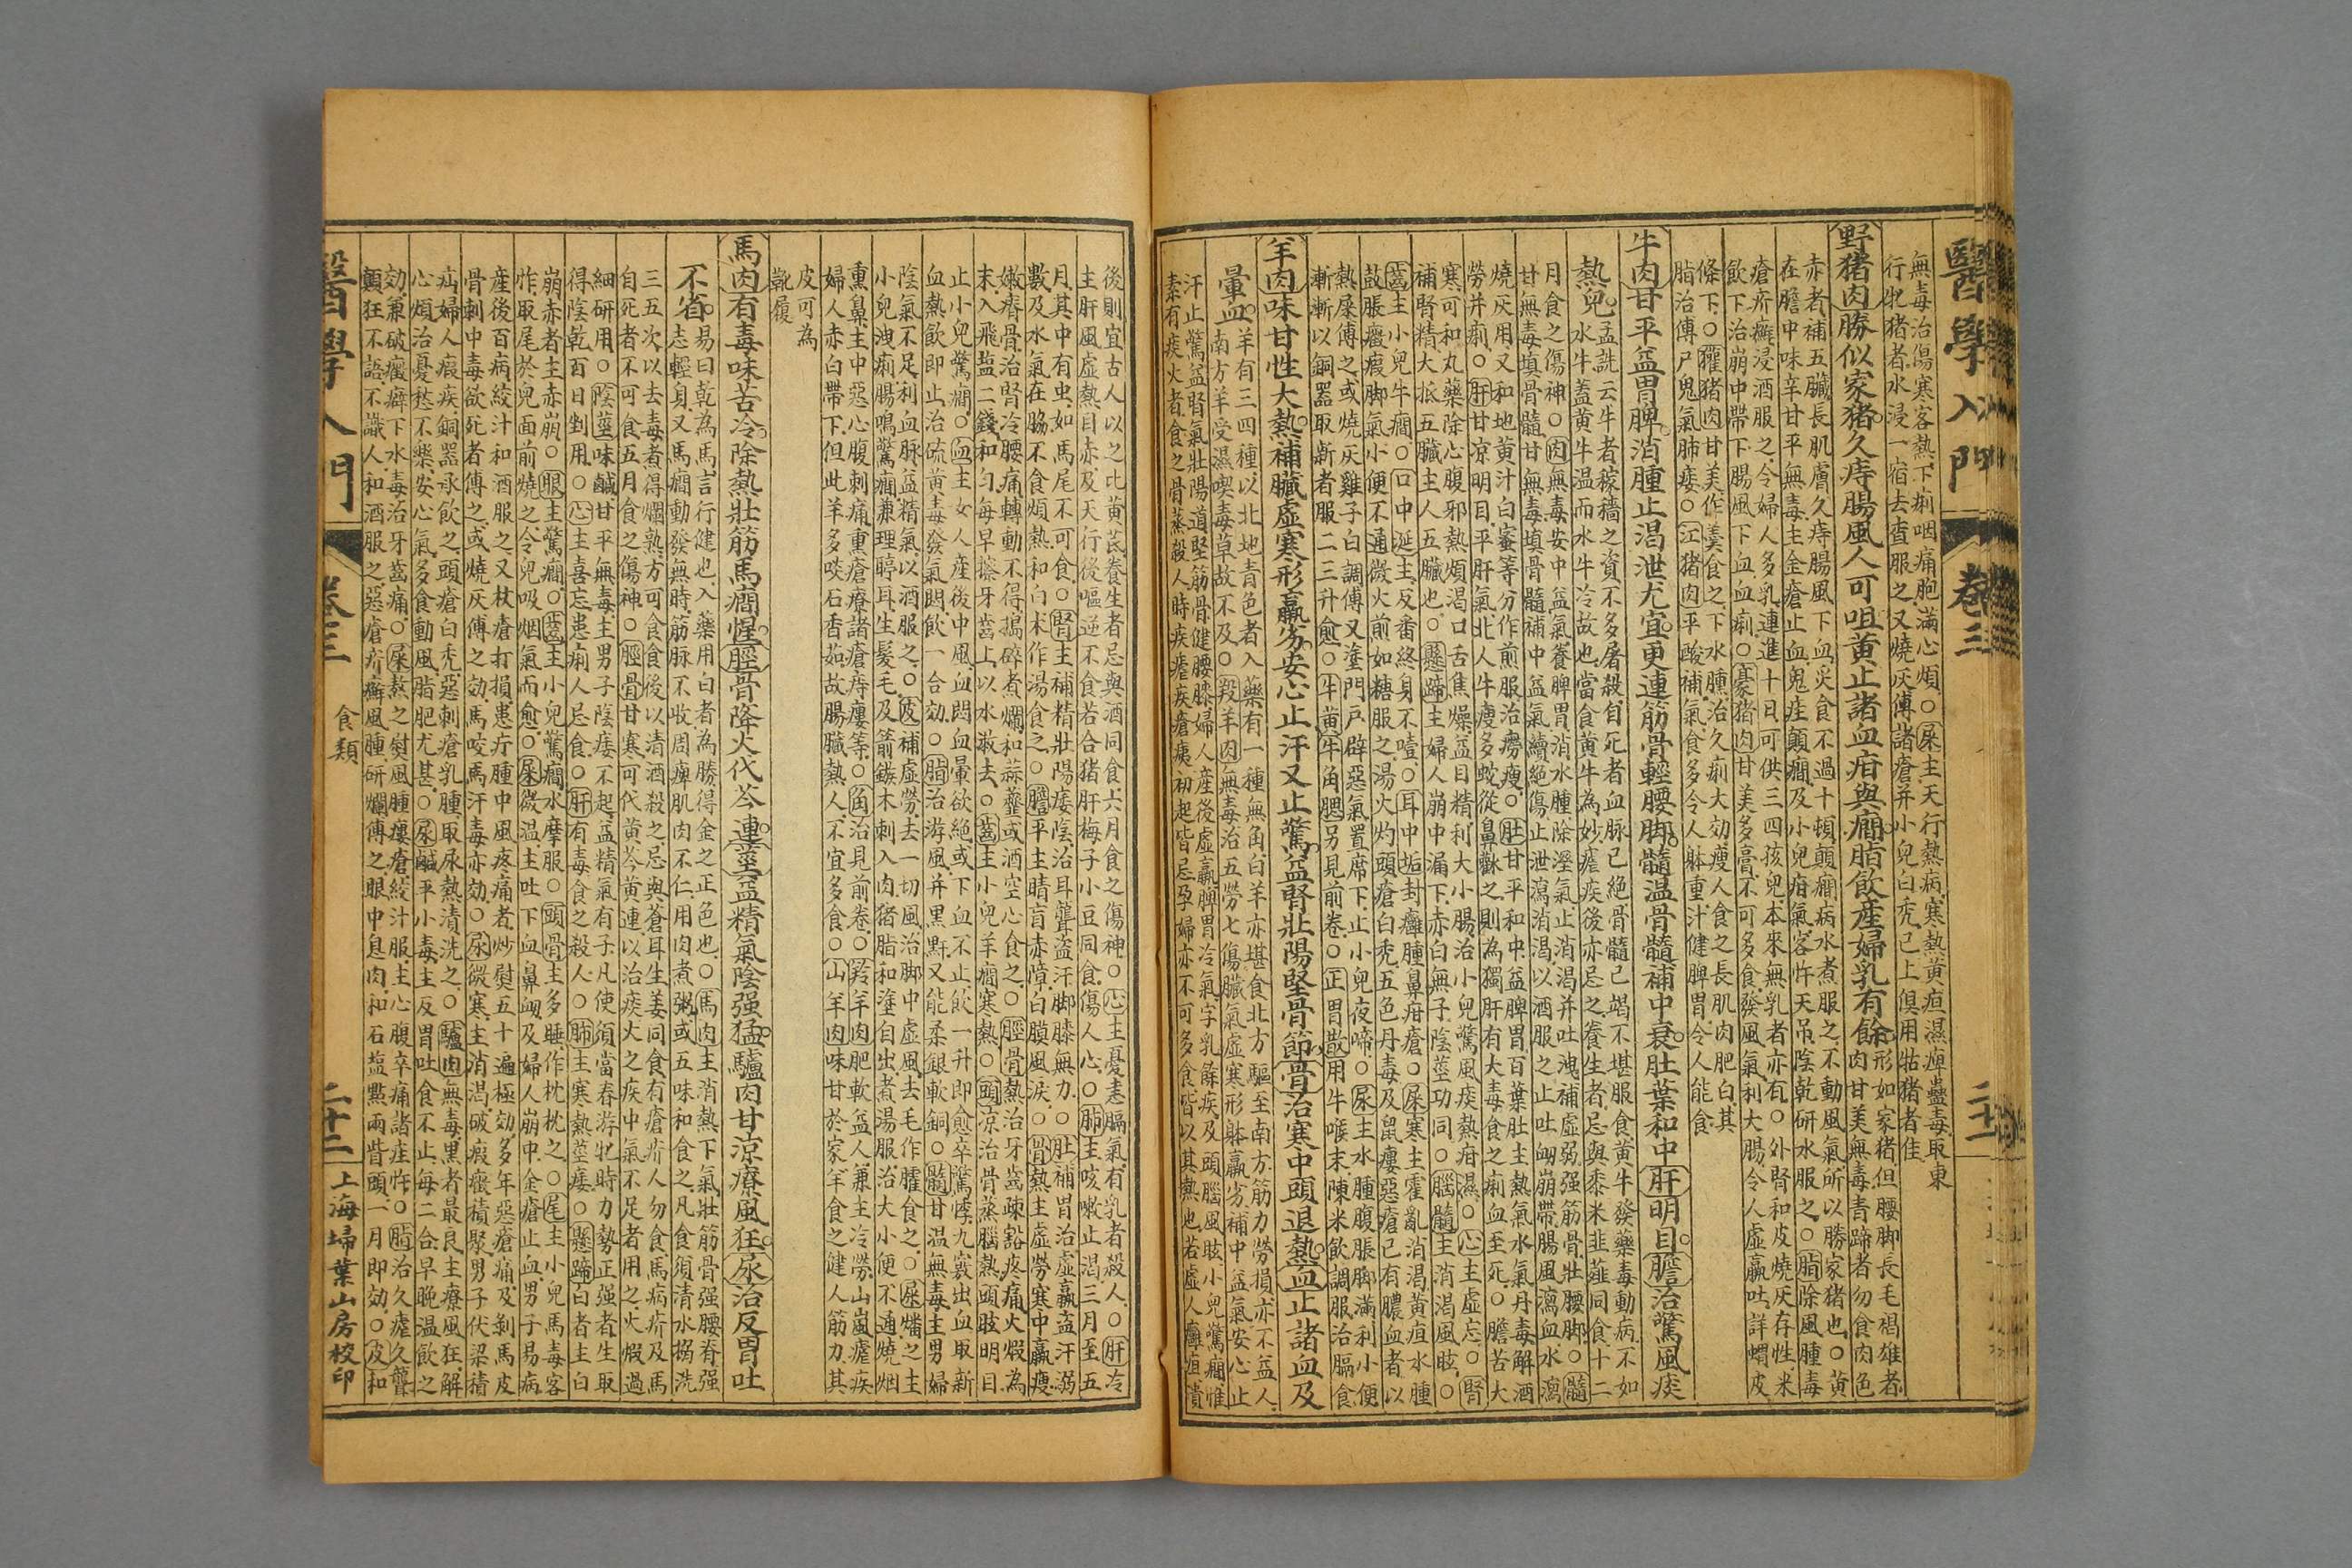 醫學入門
卷三
無毒治傷寒客熱下痢咽痛胞滿心煩○屎主天行熱病寒熱黃疸濕痺蠱毒取東
行牝猪者水浸一宿去査服之又燒灰傅諸瘡并小兒白禿已上俱用牯猪者佳
野猪肉勝似家猪久痔腸風人可咀黃止諸血疳與癎脂飲産婦乳有餘
形如家猪但腰脚長毛褐雄者
肉甘美無毒青蹄者勿食肉色
赤者補五臟長肌膚久痔腸風下血炙食不過十頓顛癎病水煮服之不動風氣所以勝家猪也○黃
在膽中味辛甘平無毒主金瘡止血鬼疰顛癎及小兒疳氣客忤天吊陰乾研水服之○脂除風腫毒
瘡疥癬浸酒服之令婦人多乳連進十日可供三四孩兒本來無乳者亦有○外腎和皮燒灰存性米
飲下治崩中帶下腸風下血血痢○豪猪肉甘美多膏不可多食發風氣利大腸令人虛羸吐詳蝟皮
條下○㹠猪肉甘美作羹食之下水腫治久痢大効瘦人食之長肌肉肥白其
脂治傳尸鬼氣肺痿○江猪肉平酸補氣食多令人躰重汁健脾胃令人能食
牛肉甘平益胃脾消腫止渴泄尤宜更連筋骨輕腰脚髓温骨髓補中衰肚葉和中肝明目膽治驚風痰
熱兒
孟詵云牛者稼穡之資不多屠殺自死者血脉已絶骨髓已竭不堪服食黃牛發藥毒動病不如
水牛蓋黃牛温而水牛冷故也當食黃牛為妙瘧疾後亦忌之養生者忌與黍米韭薤同食十二
月食之傷神○肉無毒安中益氣養脾胃消水腫除溼氣止消渴并吐洩補虛弱强筋骨壯腰脚○髓
甘無毒填骨髓甘無毒填骨髓補中益氣續絶傷止泄瀉消渴以酒服之止吐衂崩帶腸風瀉血水瀉
燒灰用又和地黃汁白蜜等分作煎服治癆瘦○肚甘平和中益脾胃百葉肚主熱氣水氣丹毒解酒
勞并痢○肝甘凉明目平肝氣北人牛瘦多蛇從鼻歡之則為獨肝有大毒食之痢血至死○膽苦大
寒可和丸藥除心腹邪熱煩渴口舌焦燥益目精利大小腸治小兒驚風痰熱疳濕○心主虛忘○腎
補腎精大抵五臟主人五臟也○懸蹄主婦人崩中漏下赤白無子陰莖功同○腦髓主消渴風眩○
齒主小兒牛癎○口中涎主反胃終身不噎○耳中垢封癰腫鼻疳瘡○屎寒主霍亂消渴黃疸水腫
鼓脹癥瘕脚氣小便不通微火煎如糖服之湯火灼頭瘡白禿五色丹毒及鼠瘻惡瘡已有膿血者以
熱屎傅之或燒灰雞子白調傅又塗門戶辟惡氣置席下止小兒夜啼○尿主水腫腹脹脚滿利小便
漸漸以銅器取漸者服二三升愈○牛黃牛角腮另見前卷○正胃散用牛喉末陳米飲調服治膈食
羊肉味甘性大熱補臟虛寒形羸劣安心止汗又止驚益腎壯陽堅骨節骨治寒中頭退熱血止諸血及
暈血
羊有三四種以北地青色者入藥有一種無角白羊亦堪食北方驅至南方筋力勞損亦不益人
南方羊受濕喫毒草故不及○羖羊肉無毒治五勞七傷臟氣虛寒形躰羸劣補中益氣安心止
汗止驚益腎氣壯陽道堅筋骨健腰膝婦人産後虛羸脾胃冷氣字乳餘疾及頭腦風眩小兒驚癎惟
素有痰火者食之骨蒸殺人時疾瘧疾瘡痍初起皆忌孕婦亦不可多食皆以其熱也若虛人癰疽潰
後則宜古人以之比黃芪養生者忌與酒同食六月食之傷神○心主憂恚膈氣有乳者殺人○肝冷
主肝風虛熱目赤及天行後嘔逆不食若合猪肝梅子小豆同食傷人心○肺主咳嗽止渴三月至五
月其中有虫如馬尾不可食○腎主補精壯陽痿陰治耳聾盗汗脚膝無力○肚補胃治虛羸盗汗溺
數及水氣在脇不食煩熱和白术作湯食之○膽平主睛盲赤障白膜風淚○骨熱主虛勞寒中羸瘦
嫩脊骨治腎冷腰痛轉動不得搗碎煮爛和蒜虀或酒空心食之○脛骨熱治牙齒疎豁疼痛火煅為
末入飛盐二錢和匀每早擦牙齒上以水漱去○齒主小兒羊癎寒熱○頭凉治骨蒸腦熱頭眩明目
止小兒驚癎○血主女人産後中風血悶血暈欲絶或下血不止飲一升即愈卒驚悸九竅出血取新
血熱飲即止治硫黃毒發氣悶飲一合効○脂治游風并黑䵟又能柔銀軟銅○髓甘温無毒主男婦
陰氣不足利血脉益精氣以酒服之○皮補虛勞去一切風治脚中虛風去毛作臛食之○屎燔之主
小兒洩痢腸鳴驚癎兼理聤耳生髮毛及箭鏃木刺入肉猪脂和塗自出煮湯服治大小便不通燒烟
熏鼻主中惡心腹刺痛熏瘡療諸瘡痔瘻等○角治見前卷○羚羊肉肥軟益人兼主冷勞山嵐瘧疾
婦人赤白帶下但此羊多啖石香茹故腸臟熱人不宜多食○山羊肉味甘於家羊食之健人筋力其
皮可為
靴履
馬肉有毒味苦冷除熱壯筋馬癎惺脛骨降火代芩連莖益精氣陰强猛驢肉甘涼療風狂尿治反胃吐
不省
易曰乾為馬言行健也入藥用白者為勝得金之正色也○馬肉主消熱下氣壯筋骨强腰脊强
志輕身又馬癎動發無時筋脉不收周痺肌肉不仁用肉煮粥或五味和食之凡食須清水搦洗
三五次以去毒者得爛熟方可食食後以清酒殺之忌與蒼耳生姜同食有瘡疥人勿食馬病疥及馬
自死者不可食五月食之傷神○脛骨甘寒可代黃芩黃連以治痰火之疾中氣不足者用之火煅過
細研用○陰莖味鹹甘平無毒主男子陰痿不起益精氣有子凡使須當春游牝時力勢正强者生取
得陰乾百日剉用○心主喜忘患痢人忌食○肝有毒食之殺人○肺主寒熱莖痿○懸蹄白者主白
崩赤者主赤崩○眼主驚癎○齒主小兒驚癎水摩服○頭骨主多睡作枕枕之○尾主小兒馬毒客
忤取尾於兒面前燒之令兒吸烟氣而愈○屎微温主吐下血鼻衂及婦人崩中金瘡止血男子易病
産後百病絞汁和酒服之又杖瘡打損患疔腫中風疼痛者炒熨五十遍極効多年惡瘡痛及剝馬皮
骨刺中毒欲死者傅之或燒灰傅之効馬咬馬汗毒亦効○尿微寒主消渴破瘕癥積聚男子伏梁積
疝婦人瘕疾銅器承飲之頭瘡白禿惡刺瘡乳腫取尿熱漬洗之○驢肉無毒黑者最良主療風狂解
心煩治憂愁不樂安心氣多食動風脂肥尤甚○尿鹹平小毒主反胃吐食不止每二合早晚温飲之
効兼破癥癖下水毒治牙齒痛○屎熬之熨風腫瘻瘡絞汁服主心腹卒痛諸疰忤○脂治久瘧久聾
顛狂不語不識人和酒服之惡瘡疥癬風腫研爛傅之眼中息肉和石盐點兩眥頭一月即効○皮和
醫學入門
卷三
食類
二十二
上海埽葉山房校印